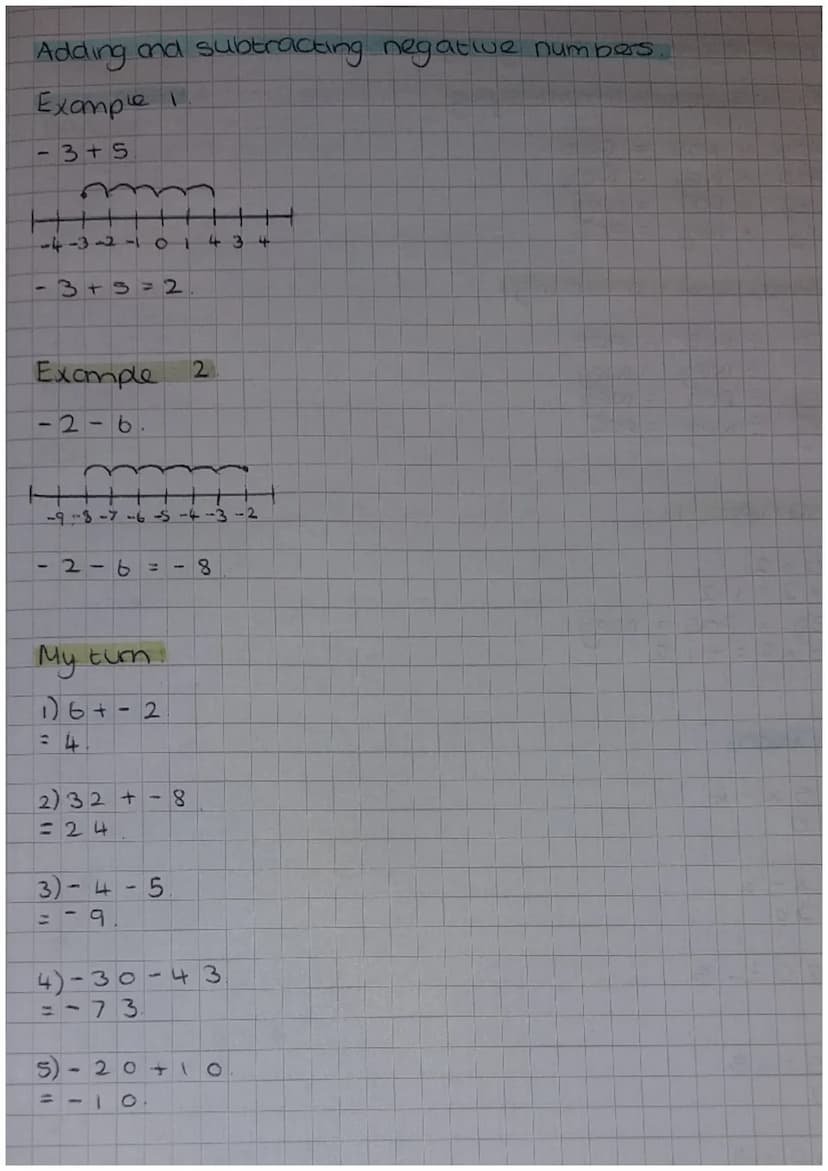 Adding and subtracting negative numbers.
Example 1
- 3 + 5
-4 -3 -2 -1 0 1 4 3 4
- 3 + 5 = 2.
Example 2
- 2 - 6.
-9 -8 -7 -6 -5 -4 -3 -2
- 2 - 6 = - 8
My turn:
1) 6 + - 2
= 4.
2) 32 + - 8
= 24.
3) - 4 - 5
= - 9.
4) - 30 - 43
= - 73.
5) - 20 + 10
= - 10.